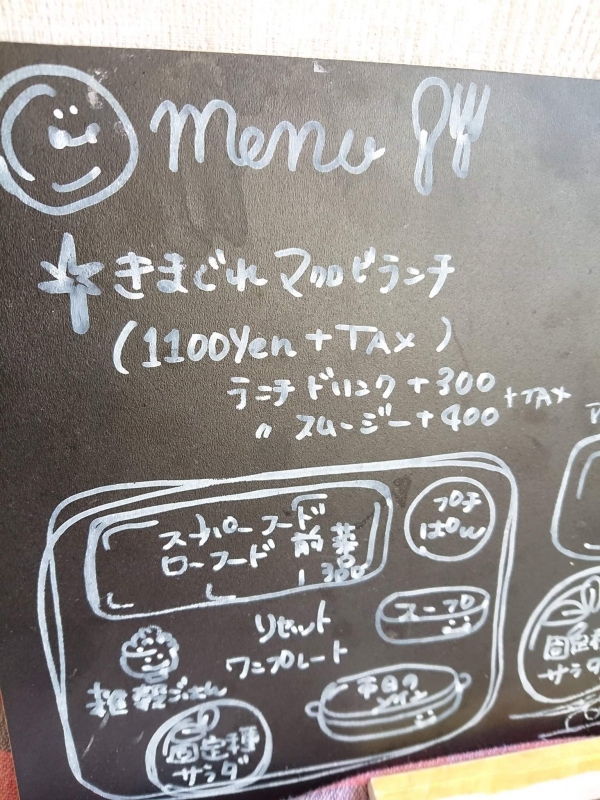 menu
きまぐれ マクロビランチ
(1100Yen + TAX)
ランチ ドリンク + 300
〃 スムージー + 400
+ TAX
スーパーフード
ローフード 前菜
300
プチ
スープ
リセット
ワンプレート
雑穀ごはん
本日の
メイン
固定種
サラダ
固定種
サラダ